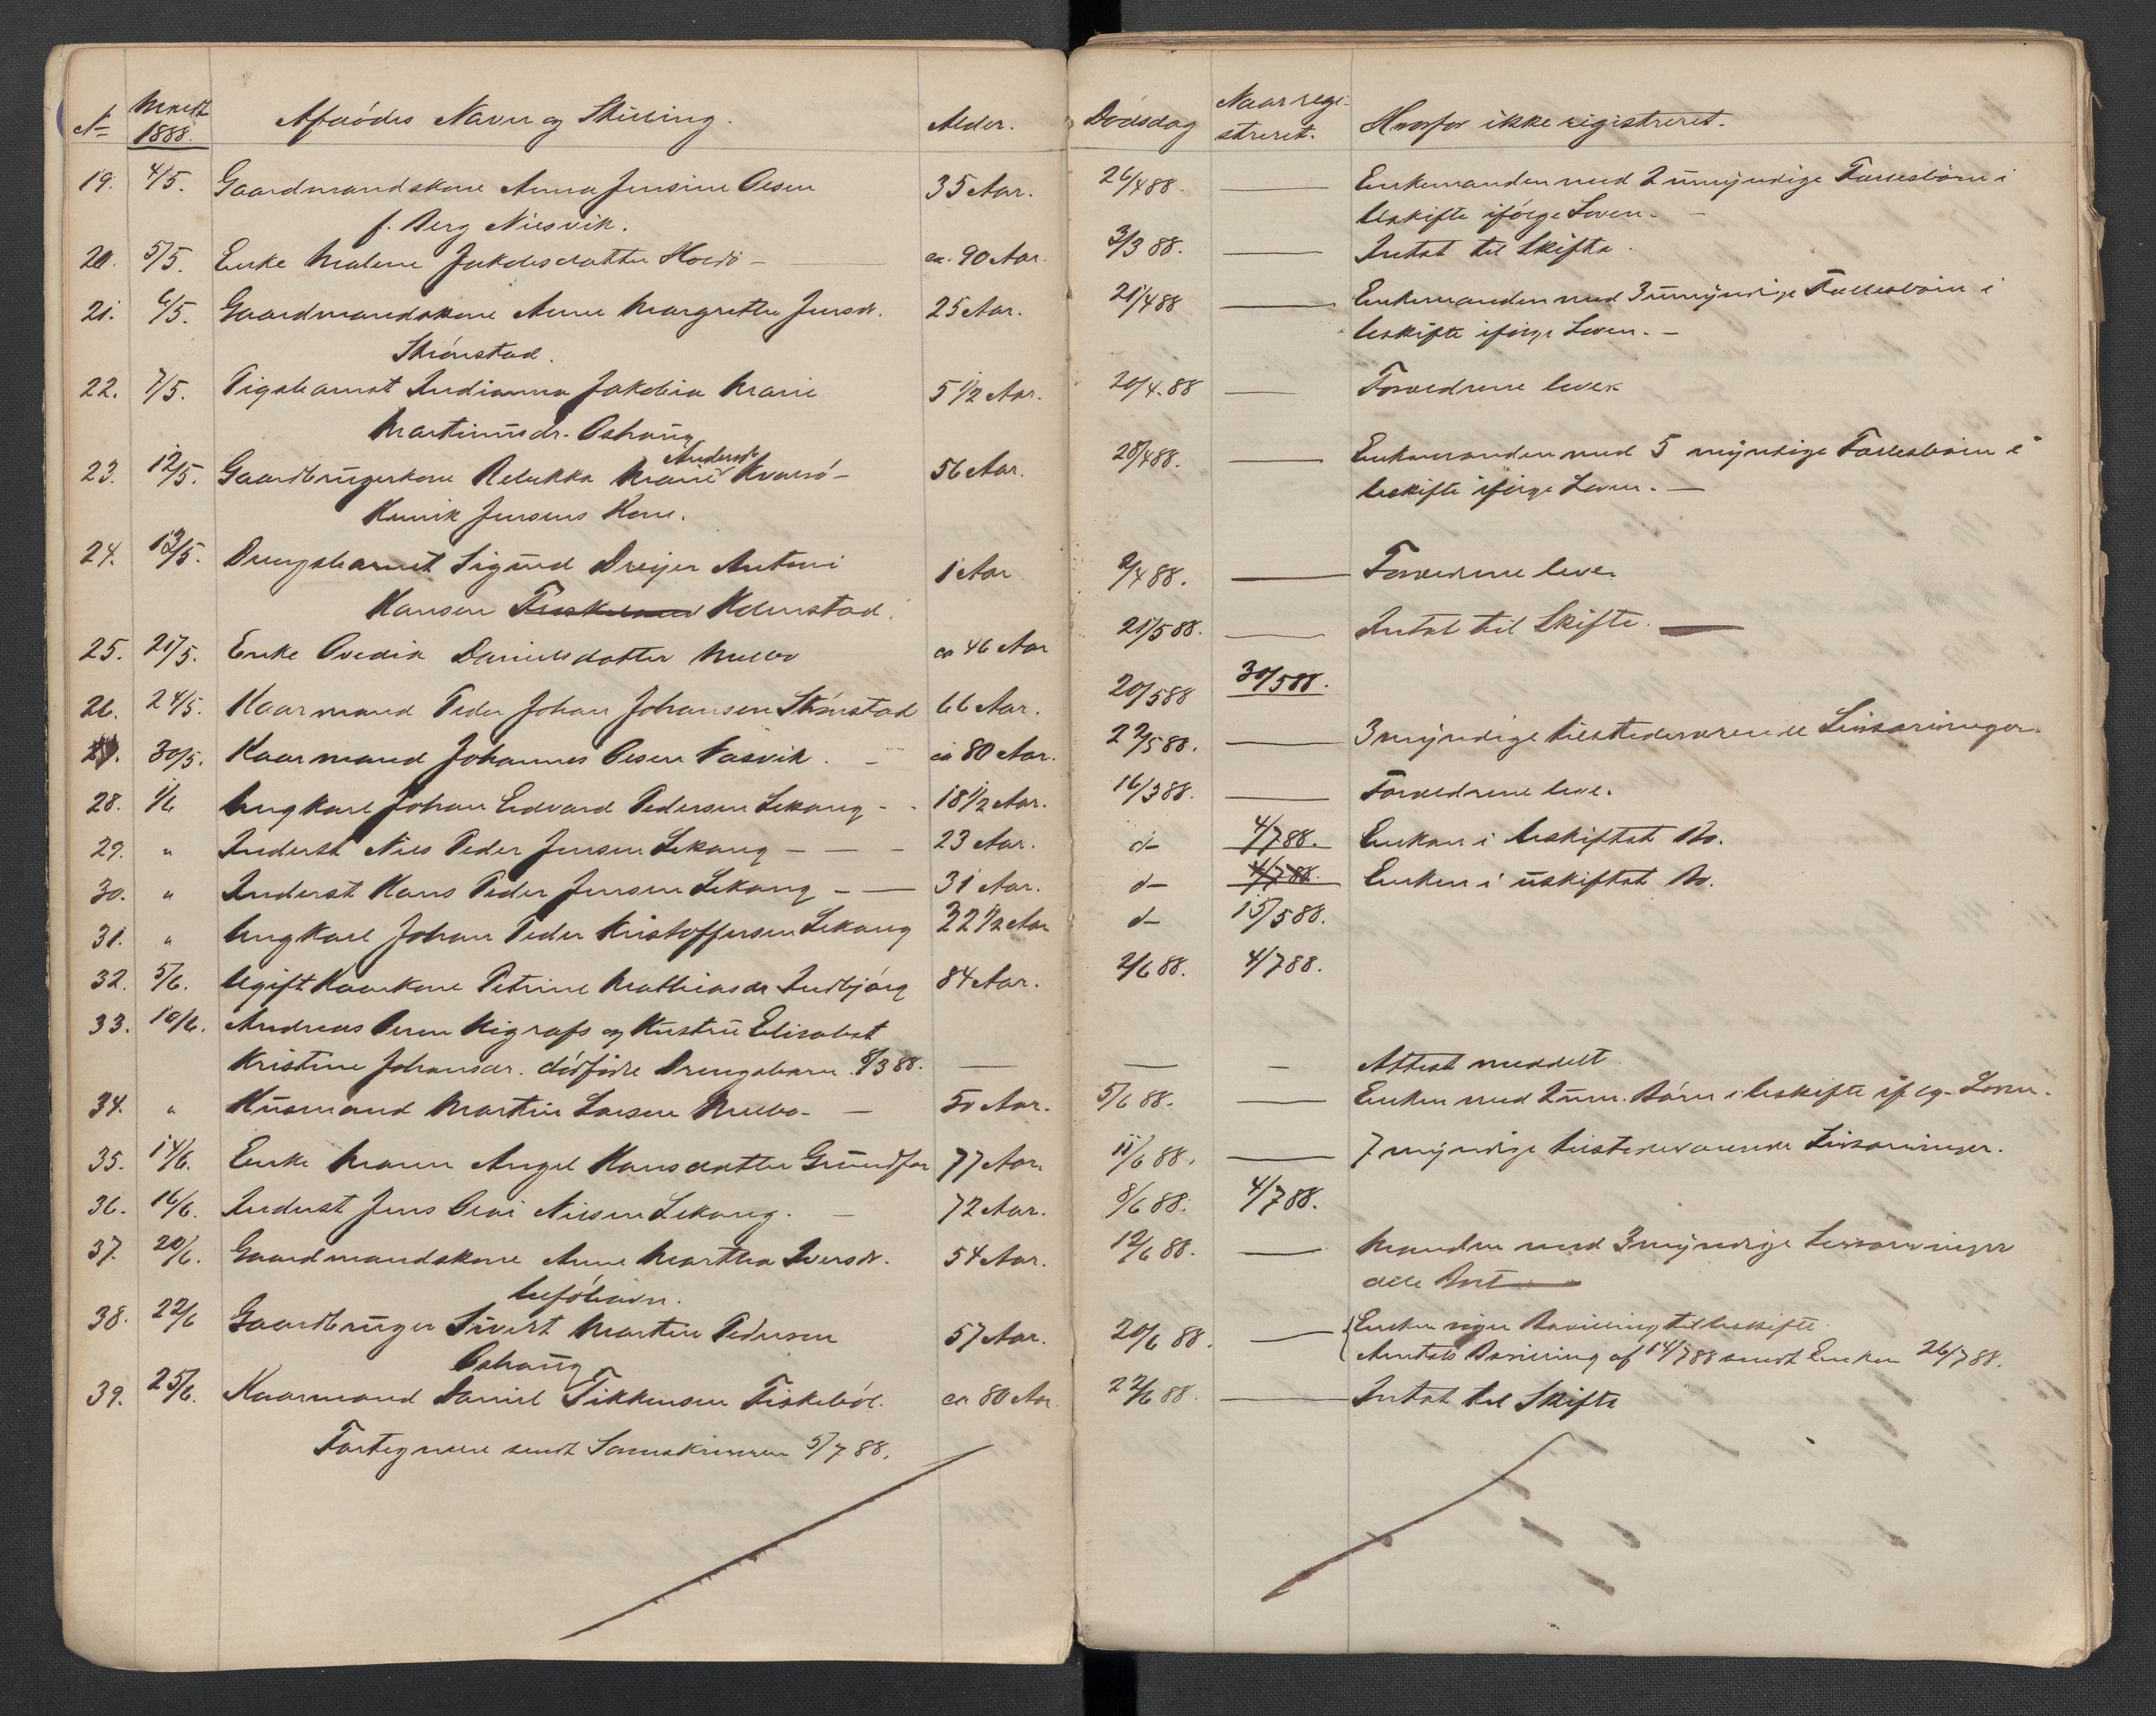 No Meldt 1888. Afdödes Navn og Stilling. Alder. Dödsdag Naar regi-
streret. Hvorfor ikke registreret.
19. 4/5. Gaardmandskone Anna Jensine Olsen 35 Aar. 26/4 88. — Enkemanden med 2 umyndige Fællesbörn i
f. Berg Nilsvik. Uskifte ifölge Loven. —
20. 5/5. Enke Malene Jakobsdatter Holdö — ca. 90 Aar. 3/3 88. — Intet til Skifte.
21. 6/5. Gaardmandskone Anne Margrethe Jensdr. 25 Aar. 21/4 88 — Enkemanden med 3 umyndige Fællesbörn i
Strönstad. Uskifte ifölge Loven. —
22. 7/5. Pigebarnet Indianna Jakobia Marie 5 1/2 Aar. 20/4. 88 — Forældrene lever
Martinusdr. Oshaug
23. 12/5. Gaardbrugerkone Rebekka Marie Andersdr Kvalsö — 56 Aar. 28/4 88. — Enkemanden med 5 myndige Fællesbörn i
Henrik Jensens Kone. Uskifte ifölge Loven. —
24. 12/5. Drengebarnet Sigurd Dreyer Antoni 1 Aar 2/4 88. — Forældrene lever
Hansen Holmstad.
25. 21/5. Enke Ovedia Danielsdatter Melbo ca 46 Aar 21/5 88. — Intet til Skifte. —
26. 24/5. Kaarmand Peder Johan Johansen Strönstad 66 Aar. 20/5 88 30/5 88.
27. 30/5. Kaarmand Johannes Olsen Fasvik. — ca 80 Aar. 22/5 88. — 3 myndige tilstedeværende Livsarvinger.
28. 1/6 Ungkarl Johan Edvard Pedersen Lekang - - 18 1/2 Aar. 16/3 88. — Forældrene leve.
29. " Inderst Nils Peder Jensen Lekang — — — 23 Aar. d— 4/7 88. Enken i Uskiftet Bo.
30. " Inderst Hans Peder Jensen Lekang — — 31 Aar. d— 4/7 88. Enken i uskiftet Bo.
31. " Ungkarl Johan Peder Kristoffersen Lekang 22 1/2 Aar d— 15/5 88.
32. 5/6. Ugift Kaarkone Petrine Mathiasdr Indbjörg 84 Aar. 2/6 88. 4/7 88.
33. 10/6. Andreas Kigrafs og Hustru Elisabet
Kristine Johansdr. dödfödte Drengebarn 8/3 88. — — — Attest meddelt
34. " Husmand Martin Larsen Melbo — — 50 Aar. 5/6 88. — Enken med 2 um. Börn i Uskifte iflg. Loven.
35. 14/6. Enke Maren Angel Hansdatter Grundfor 77 Aar. 11/6 88. — 7 myndige tilstedeværende Livsarvinger.
36. 16/6. Inderst Jens Olai Nilsen Lekang. — 72 Aar. 8/6 88. 4/7 88.
37. 20/6. Gaardmandskone Anne Martha Iversdr. 54 Aar. 12/6 88. — Manden med 3 myndige Livsarvinger
Ulföhavn. dele Boet —
38. 22/6 Gaardbruger Sivert Martin Pedersen 57 Aar. 20/6 88. — Enken Bevilling til Uskifte.
Oshaug Amtets Bevilling af 14/7 88 sendt Enken 26/7 88.
39. 25/6. Kaarmand Daniel Tikkensen Fiskeböl. ca 80 Aar. 22/6 88. — Intet til Skifte
Fortegnelse sendt Sorenskriveren 5/7 88.